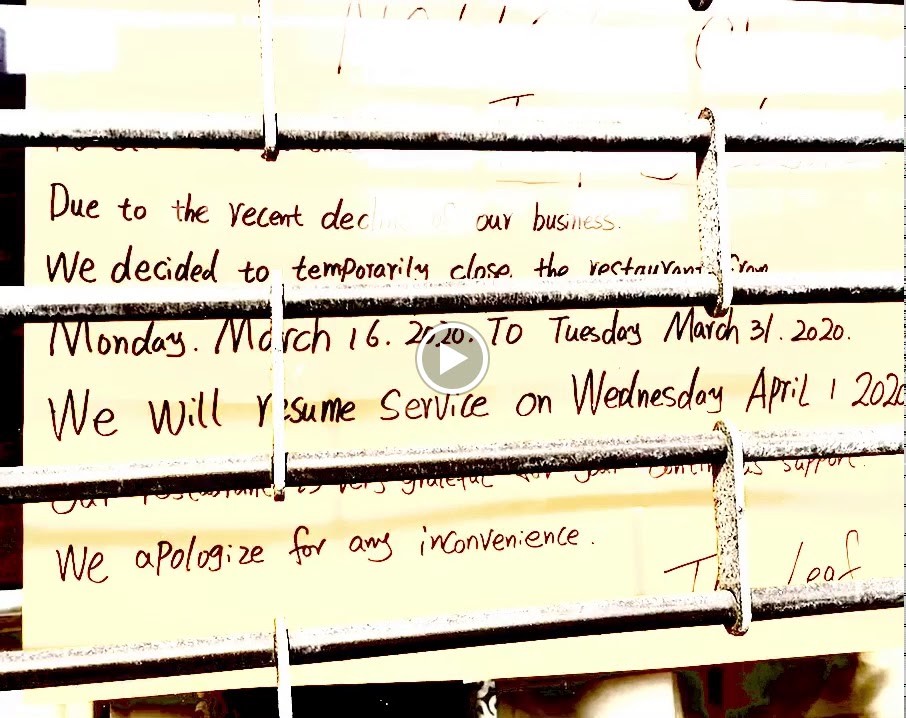 Due to the recent decline of our business.
We decided to temporarily close the restaurant from
Monday. March 16. 2020. To Tuesday March 31. 2020.
We Will resume Service on Wednesday April 1 2020
Our restaurant is very grateful for your continuous support.
We apologize for any inconvenience.
leaf